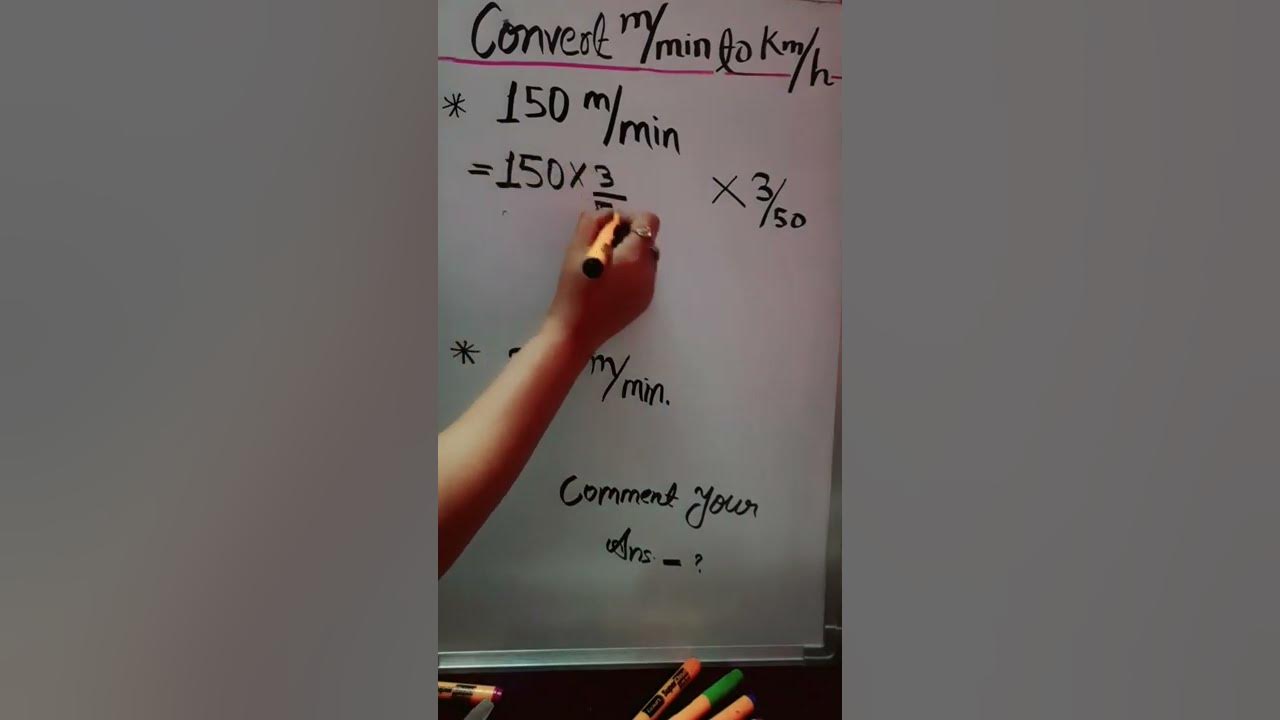 Convert m/min to Km/h
* 150 m/min
= 150 × 3
× 3/50
* m/min.
Comment Your
Ans. - ?